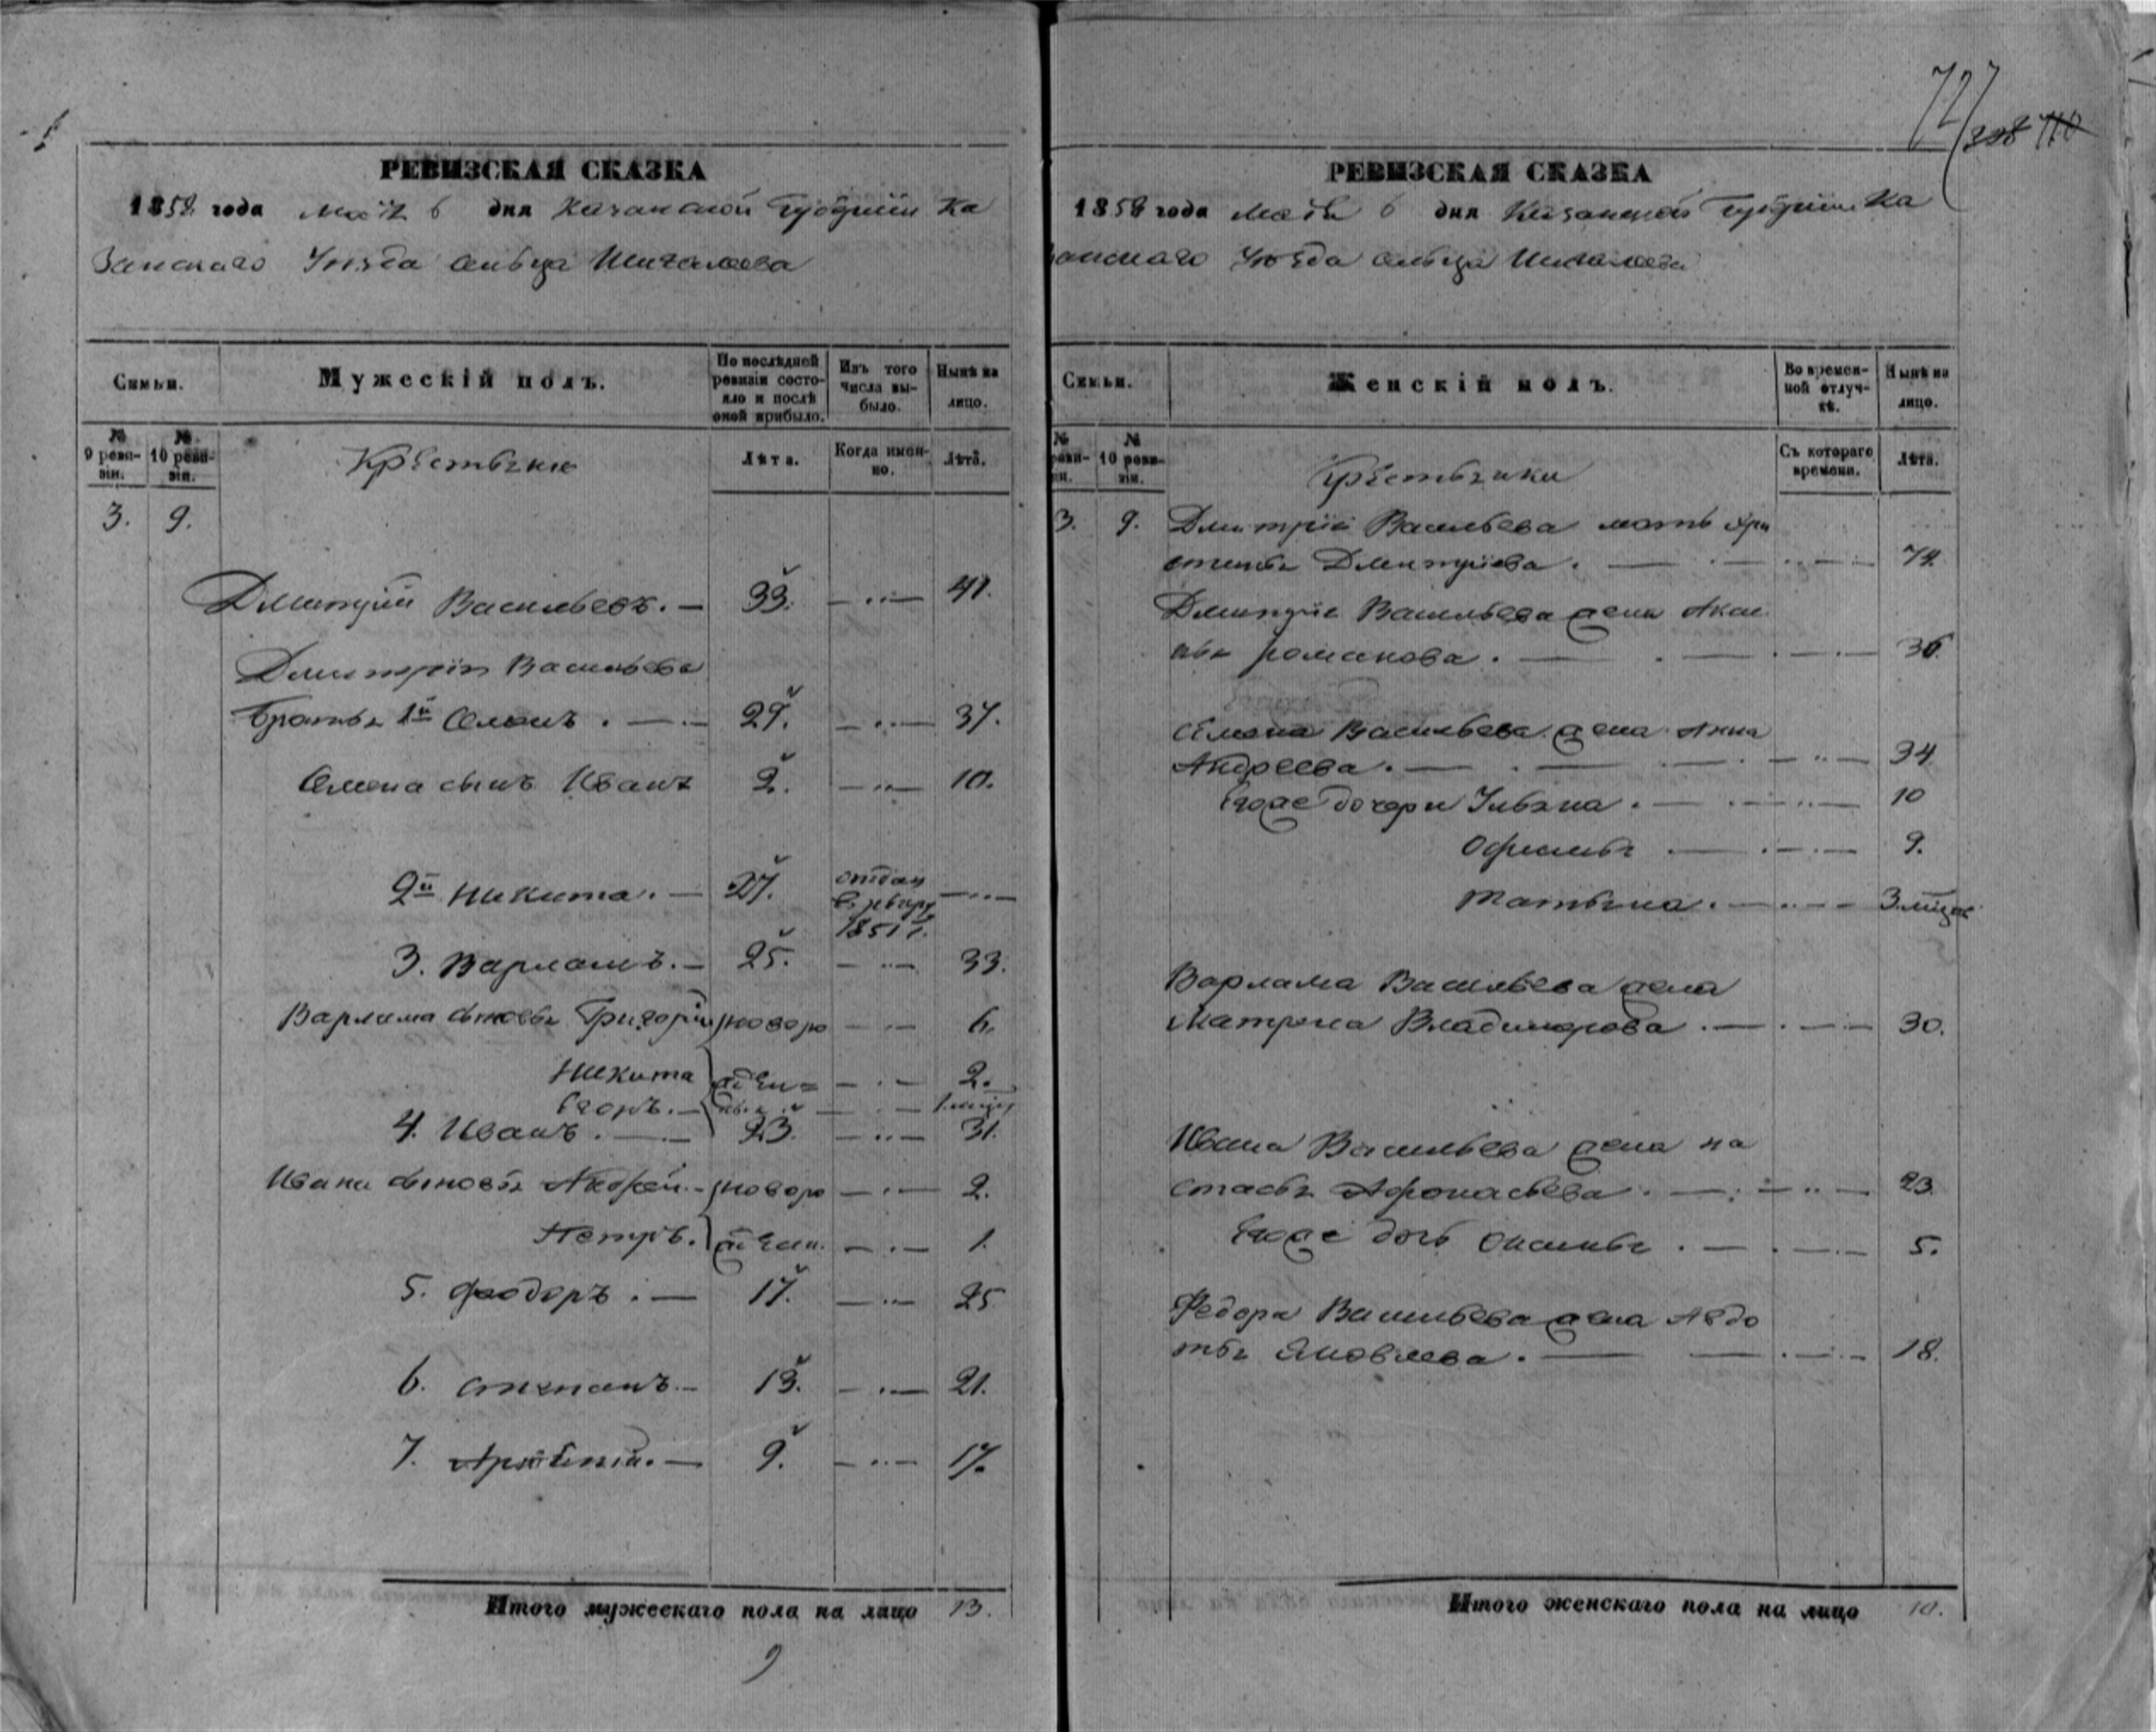 727
328 710
РЕВИЗСКАЯ СКАЗКА
1858 года Маія 6 дня Казанской Губерніи Ка
занскаго Уѣзда сельца Шигалеева
Семьи.
Мужескій полъ.
По послѣдней ревизіи состояло и послѣ оной прибыло.
Изъ того числа выбыло.
Нынѣ на лицо.
№ 9 ревизіи.
№ 10 ревизіи.
Крестьяне
Лѣта.
Когда именно.
Лѣта.
3. 9.
Дмитрій Васильевъ. — 33. — 41.
Дмитрія Васильева
братья 1й Семенъ. — 29. — 37.
Семена сынъ Иванъ 2. — 10.
2й Никита. — 27. отдан в рекру 1851 г. —
3. Варламъ. — 25. — 33.
Варлама сыновья Григорій новоро — 6.
Никита жден= — 2.
Егоръ. — ные — 1 мѣся
4. Иванъ. — 23. — 31.
Ивана сыновья Андрей. — новоро — 2.
Петръ. жден. — 1.
5. Феодоръ. — 17. — 25.
6. Степанъ. — 13. — 21.
7. Арсеній. — 9. — 17.
Итого мужескаго пола на лицо 13.
9
РЕВИЗСКАЯ СКАЗКА
1858 года Маія 6 дня Казанской Губерніи Ка
занскаго Уѣзда сельца Шигалеева
Семьи.
Женскій полъ.
Во временной отлучкѣ.
Нынѣ на лицо.
№ реви-
№ 10 ревизіи.
Крестьянки
Съ котораго времени.
Лѣта.
3. 9. Дмитрія Васильева мать Хри
стинья Дмитріева. — 74.
Дмитрія Васильева жена Акси
нья Романова. — 36.
Семена Васильева жена Анна
Андреева. — 34
Егоже дочери Ульяна. — 10
Офимья — 9.
Татьяна. — 3 мѣсяц
Варлама Васильева жена
Матрена Владимерова. — 30.
Ивана Васильева жена На
стасья Афонасьева. — 23.
Егоже дочь Оксинья. — 5.
Федора Васильева жена Авдо
тья Яковлева. — 18.
Итого женскаго пола на лицо 10.